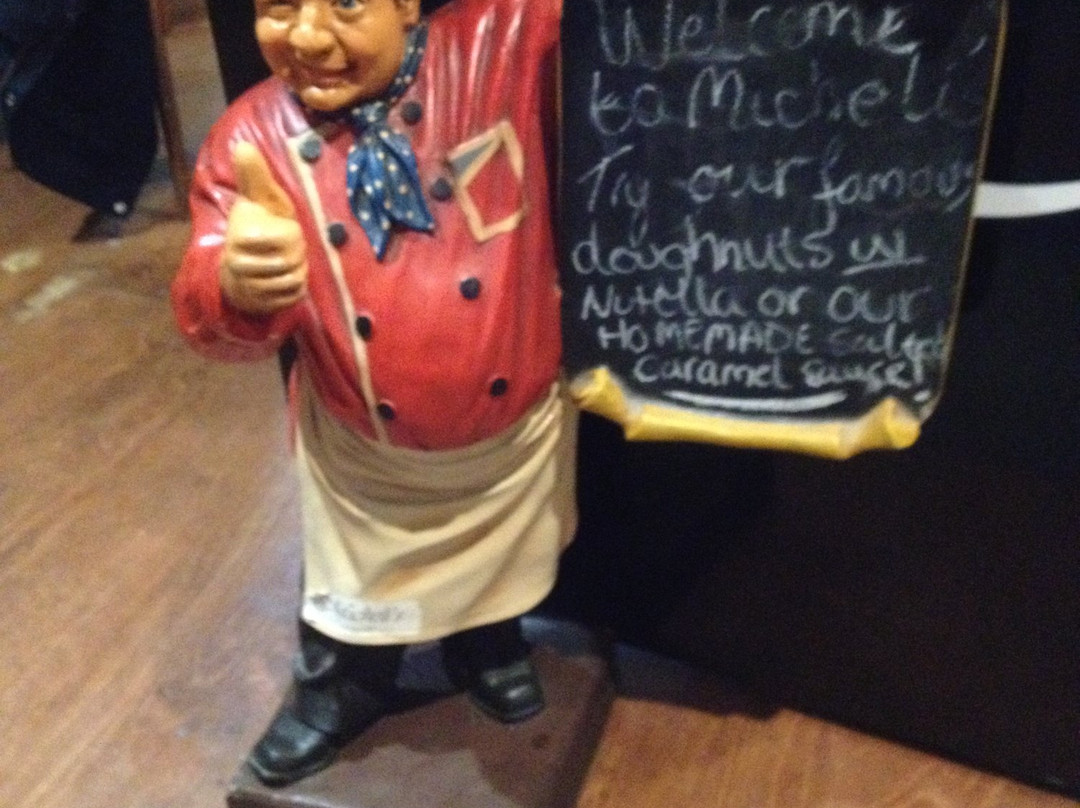 Welcome
to Michel's
Try our famous
doughnuts w
Nutella or our
HOMEMADE salted
caramel sauce!
Michel's